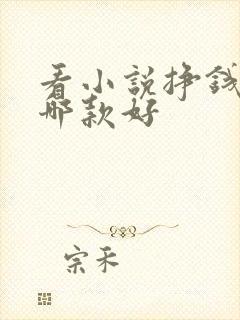 看小說挣錢
哪款好
宗禾